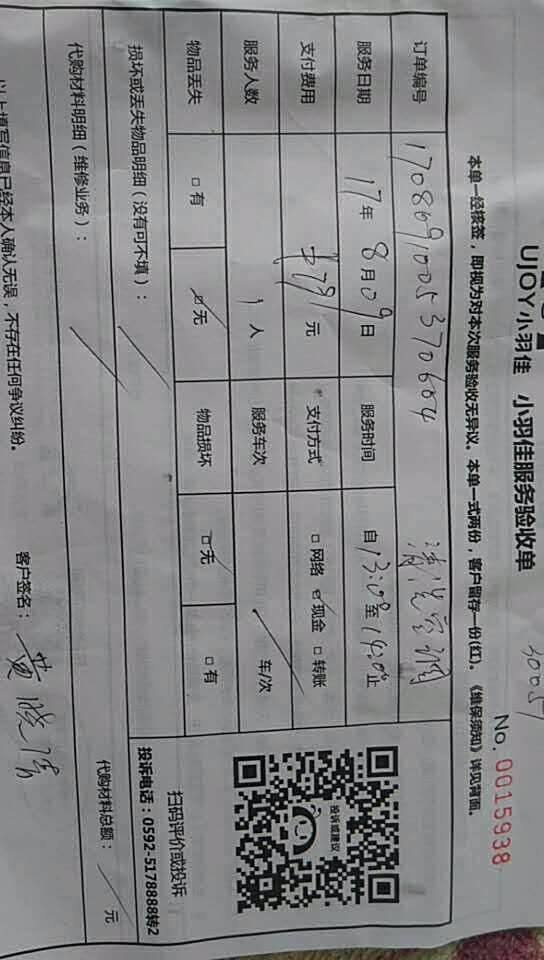 30057
UJOY小羽佳 小羽佳服务验收单
No. 00015938
本单一经核签，即视为对本次服务验收无异议。本单一式两份，客户留存一份(红)。《维保须知》详见背面。
订单编号 清洗空调
服务日期 17年 8月09日 服务时间 自13:00至14:00止
支付费用 元 支付方式 □网络 ☑现金 □转账
服务人数 1人 服务车次 / 车/次
物品丢失 □有 ☑无 物品损坏 ☑无 □有
投诉或建议
扫码评价或投诉
投诉电话：0592-5178888转2
损坏或丢失物品明细（没有可不填）： /
代购材料明细（维修业务）： / 代购材料总额： / 元
以上填写信息已经本人确认无误，不存在任何争议纠纷。
客户签名：黄晓